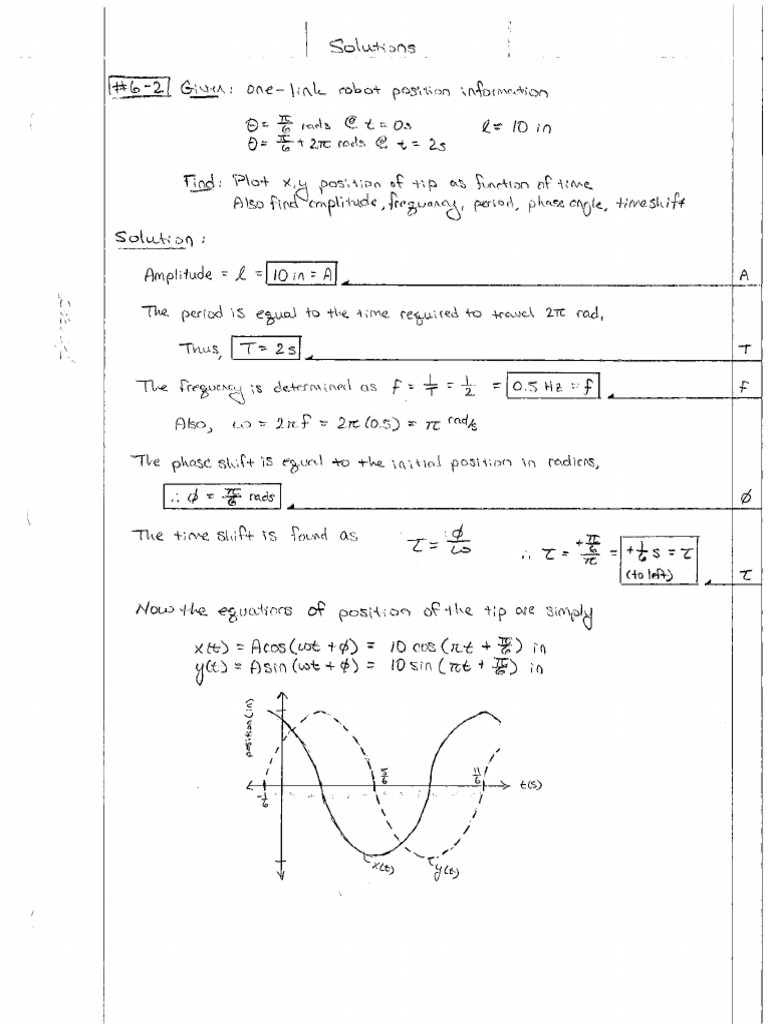 Solutions
#6-2 Given: one-link robot position information
θ = π/6 rads @ t = 0s l = 10 in
θ = π/6 + 2π rads @ t = 2s
Find: Plot x,y position of tip as function of time
Also find amplitude, frequency, period, phase angle, time shift
Solution:
Amplitude = l = 10 in = A A
The period is equal to the time required to travel 2π rad,
Thus, T = 2s T
The frequency is determined as f = 1/T = 1/2 = 0.5 Hz = f F
Also, ω = 2πf = 2π(0.5) = π rad/s
The phase shift is equal to the initial position in radians,
∴ φ = π/6 rads φ
The time shift is found as τ = φ/ω ∴ τ = +π/6/π = +1/6 s = τ
(to left) τ
Now the equations of position of the tip are simply
x(t) = Acos(ωt + φ) = 10 cos(πt + π/6) in
y(t) = Asin(ωt + φ) = 10 sin(πt + π/6) in
position (in)
5/6 11/6
t(s)
-1/6
x(t)
y(t)